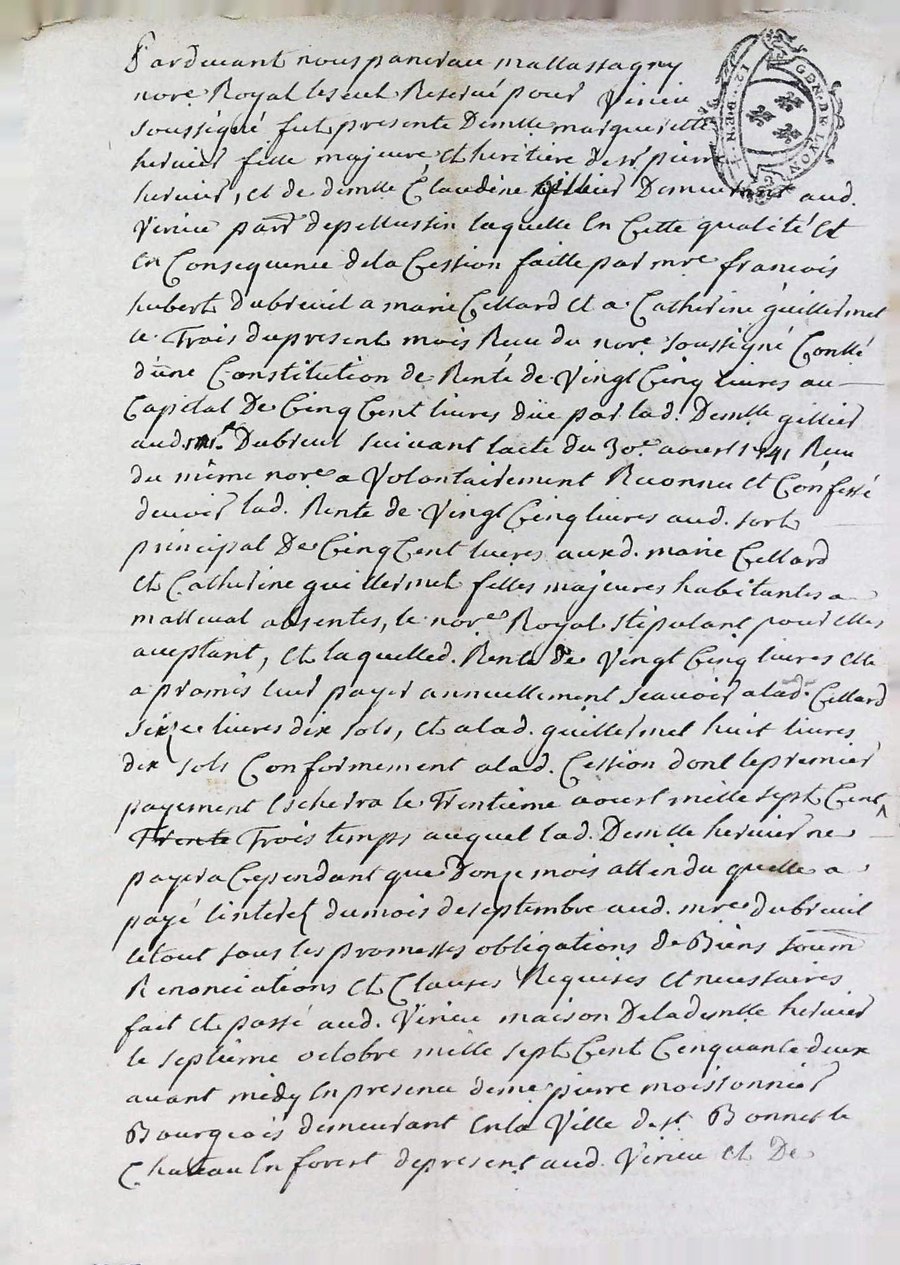 GEN. DE LYON
12. DEN.
Pardevant nous pancrau mallassagny
nore. Royal le seul Reservé pour Virieu
soussigné fut presente Demlle margueritte
hervier fille majeure, et heritiere de sr pierre
hervier, et de demlle Claudine gillier Demeurant aud.
Virieu parr. de pellussin laquelle En Cette qualité et
En Consequence de la Cession faitte par mre françois
hubert Dubreuil a marie Cellard et a Catherine guillermet
le Trois du present mois Receu du nore. soussigné Contlé
d'une Constitution de Rente de Vingt Cinq livres au
Capital De Cinq Cent livres düe par lad. Demlle gillier
aud. mre. Dubreul suivant lacte du 30e. aoust 1741 Receu
du même nore a Volontairement Reconnu et Confessé
devoir lad. Rente de Vingt Cinq livres aud. sort
principal De Cinq Cent livres auxd. marie Cellard
et Catherine guillermet filles majeures habitantes a
malleval absentes, le nore Royal stipulant pour Elles
aceptant, et laquelled. Rente de Vingt Cinq livres elle
a promis leur payer annuellement scavoir a lad. Cellard
seize livres dix sols, et a lad. guillermet huit livres
dix sols Conformement a lad. Cession dont le premier
payement Escherra le Trentieme aoust mille sept Cent
Trente Trois temps auquel lad. Demlle hervier ne
payera Cependant que Donze mois attendu quelle a
payé linteret du mois de septembre aud. mre Dubreuil
le tout sous les promesses obligations de Biens soum
Renonciations et Clauses Requises et necessaires
fait et passé aud. Virieu maison De lademlle hervier
le septieme octobre mille sept Cent Cinquante deux
avant midy En presence de me pierre moissonnier
Bourgeois demeurant En la Ville de st Bonnet le
Chateau En forest de present aud. Virieu et De